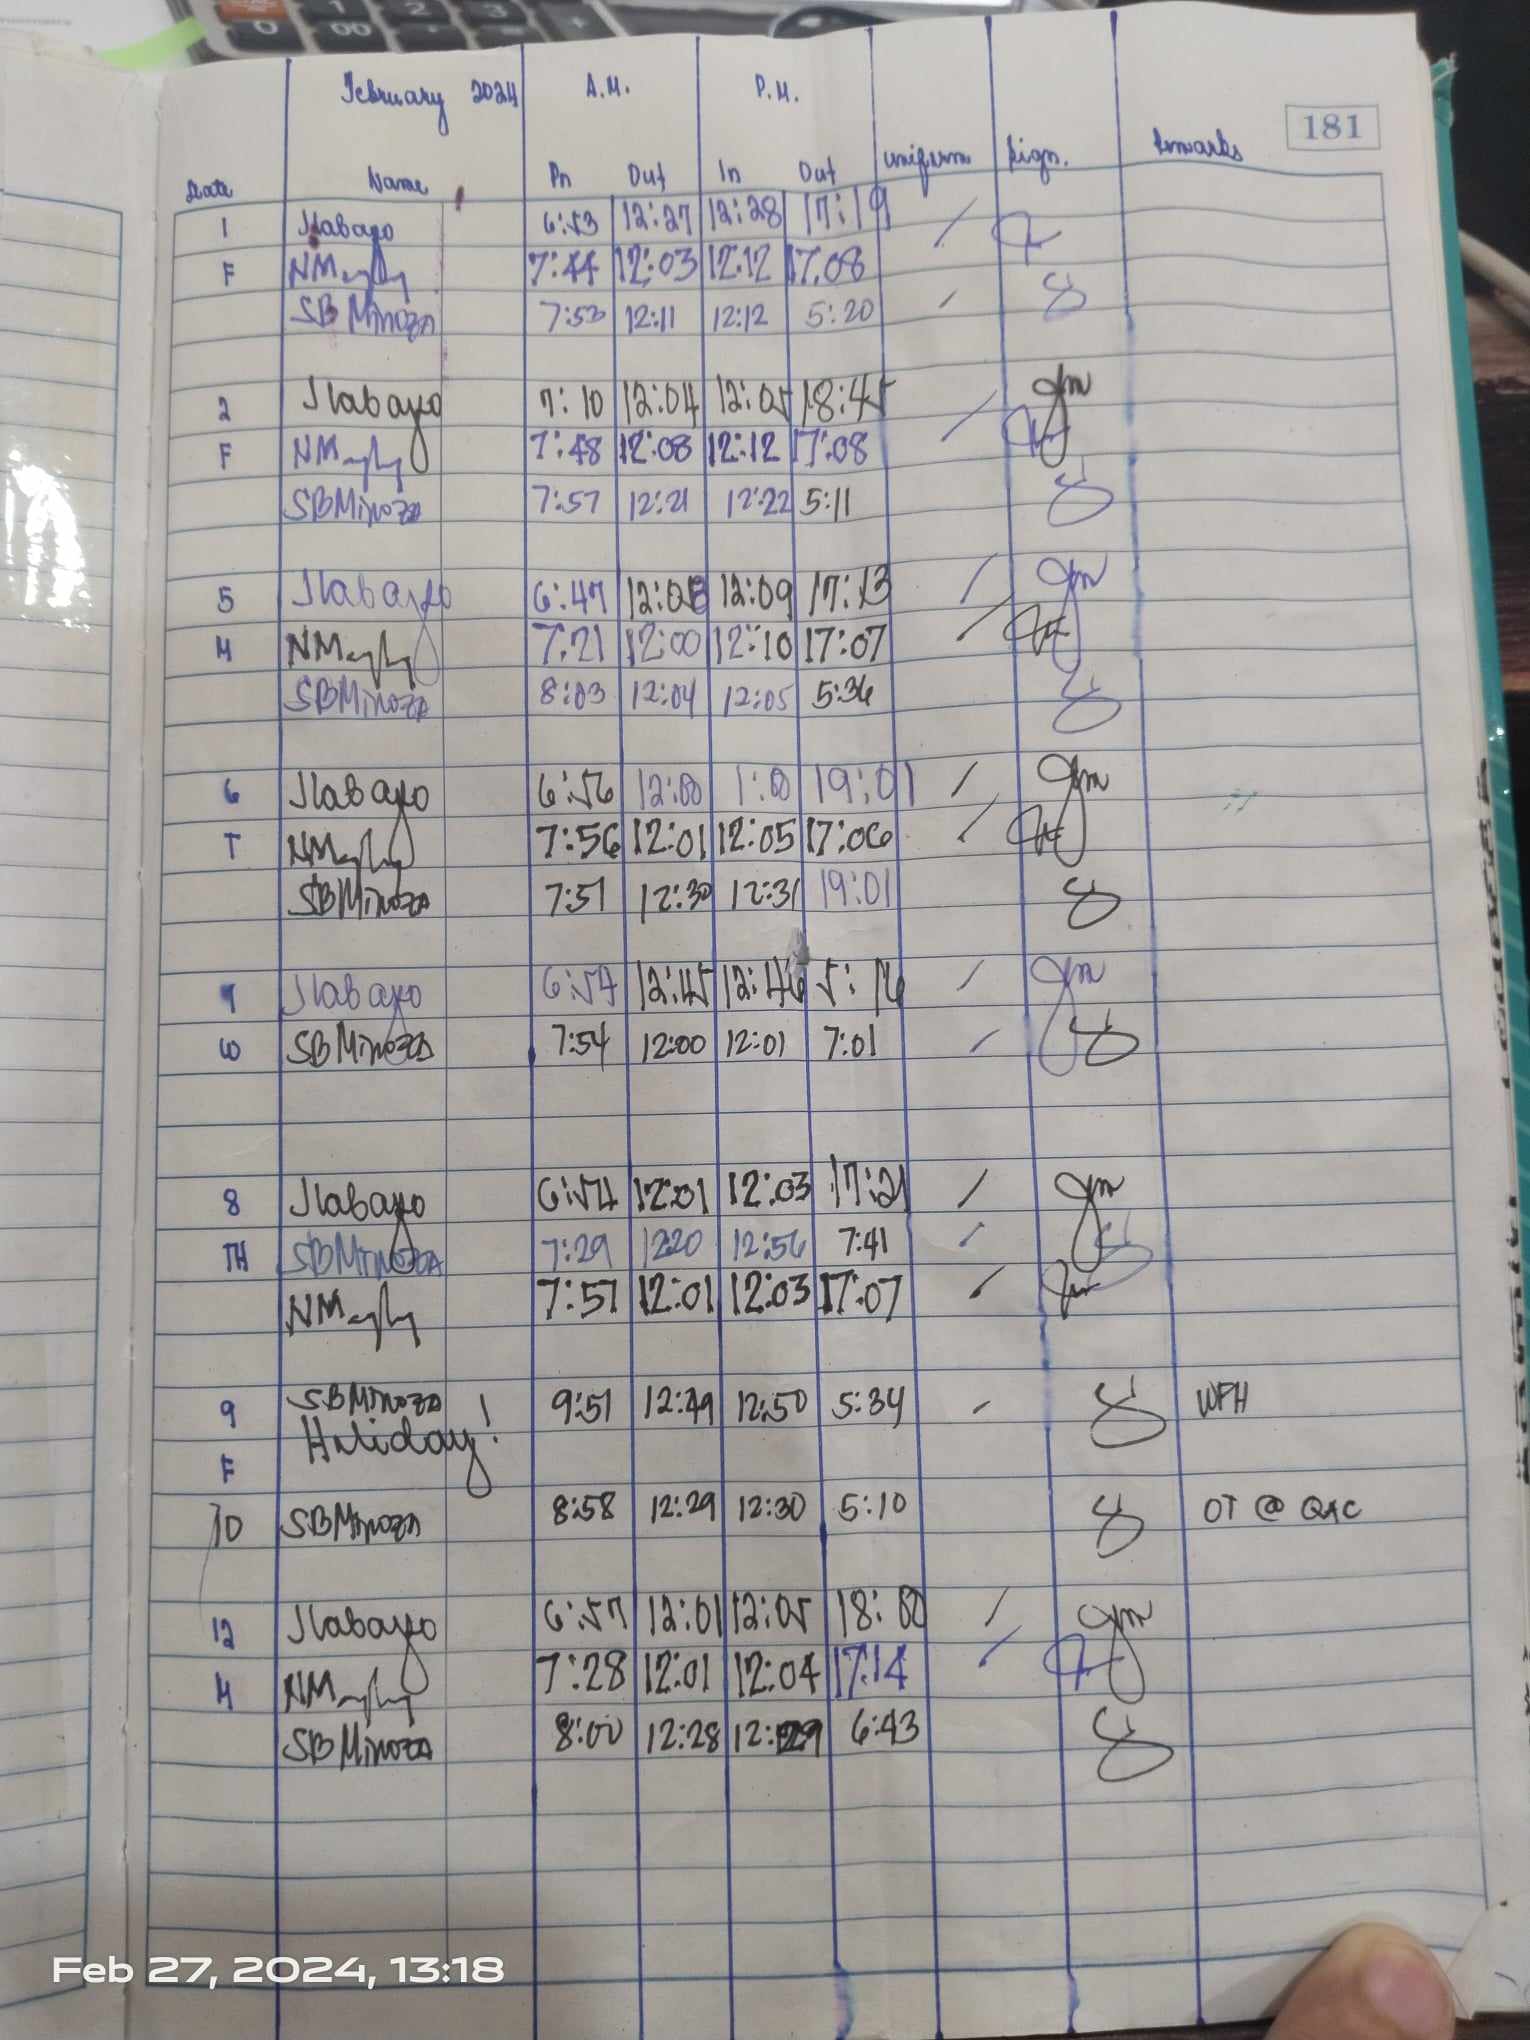 0 00
1 2 3 +
February 2024 A.M. P.M.
181
Date Name In Out In Out Uniform Sign. Remarks
1 Jlabayo 6:53 12:27 12:28 17:19 /
F 7:44 12:03 12:12 17:08
SBMinoza 7:53 12:11 12:12 5:20 /
2 Jlabayo 7:10 12:04 12:05 18:45 /
F 7:48 12:08 12:12 17:08
SBMinoza 7:57 12:21 12:22 5:11
5 Jlabayo 6:47 12:08 12:09 17:13 /
M 7:21 12:00 12:10 17:07 /
SBMinoza 8:03 12:04 12:05 5:36
6 Jlabayo 6:56 12:00 1:00 19:01 /
T 7:56 12:01 12:05 17:06 /
SBMinoza 7:51 12:30 12:31 19:01
7 Jlabayo 6:54 12:45 12:46 5:16 /
W SBMinoza 7:54 12:00 12:01 7:01 /
8 Jlabayo 6:54 12:01 12:03 17:21 /
TH SBMinoza 7:29 12:20 12:56 7:41 /
7:57 12:01 12:03 17:07 /
9 SBMinoza 9:51 12:49 12:50 5:34 / WFH
Holiday!
F
10 SBMinoza 8:58 12:29 12:30 5:10 OT @ QAC
12 Jlabayo 6:57 12:01 12:05 18:00 /
M 7:28 12:01 12:04 17:14 /
SBMinoza 8:00 12:28 12:29 6:43
Feb 27, 2024, 13:18